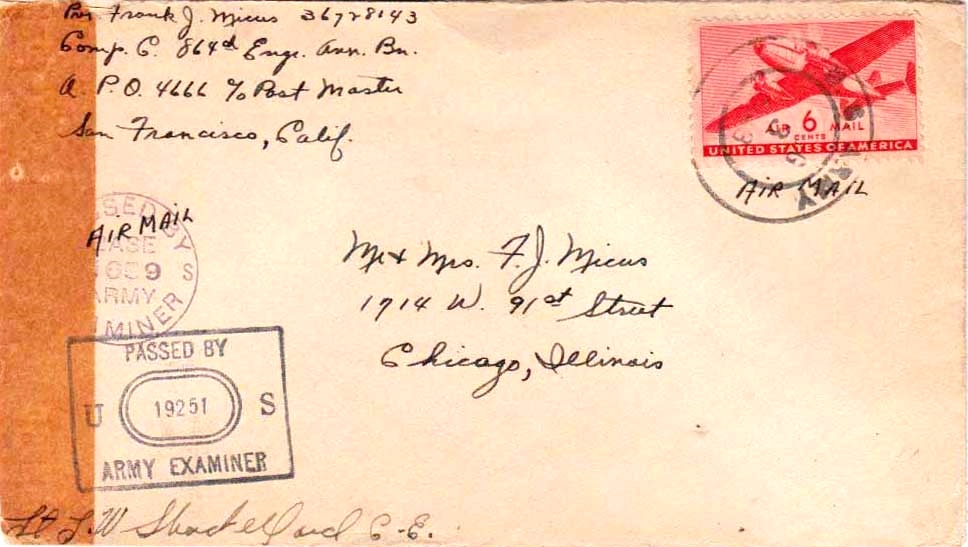 Pvt. Frank J. Micus 36728143
Comp. C. 864th Engr. Avn. Bn.
A. P.O. 4666 c/o Post Master
San Francisco, Calif.
AIR 6 MAIL
CENTS
UNITED STATES OF AMERICA
AIR MAIL
AIR MAIL
Mr + Mrs. F. J. Micus
1714 W. 91st Street
Chicago, Illinois
ARMY
PASSED BY
U 19251 S
ARMY EXAMINER
Lt L.W Shackelford C-E.